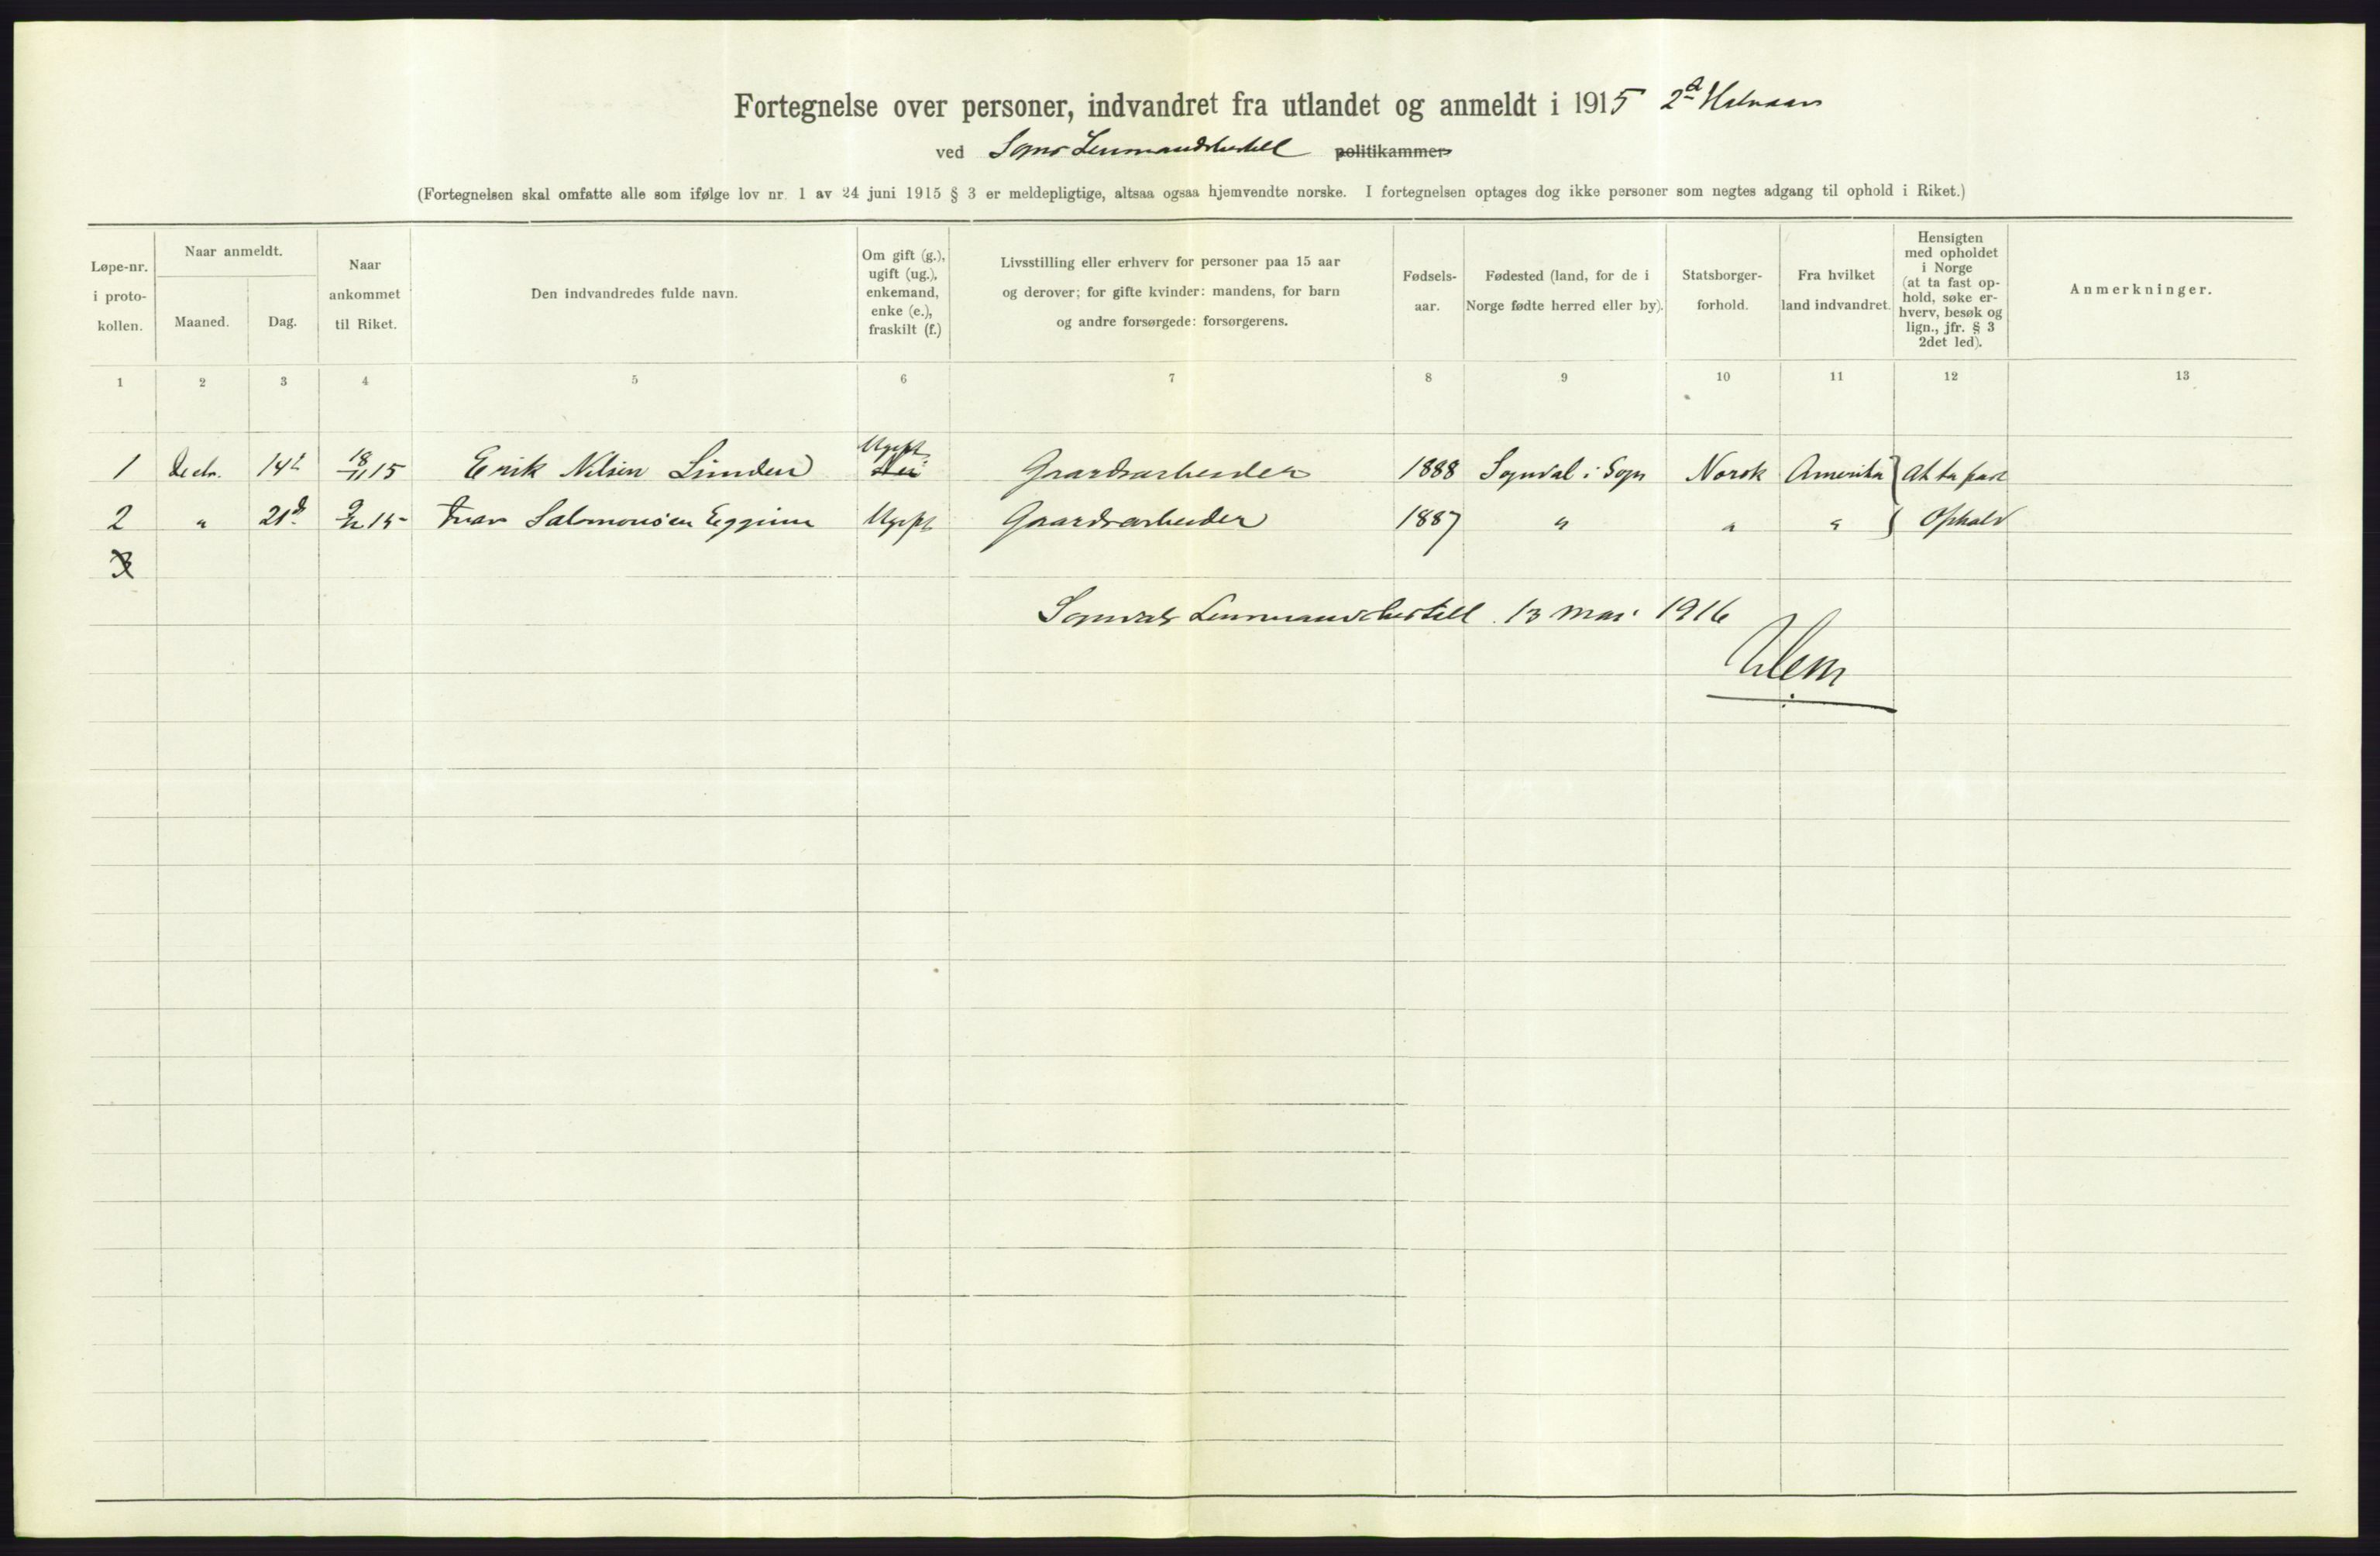 Fortegnelse over personer, indvandret fra utlandet og anmeldt i 1915 2d Halvaar
ved Sogns Lensmandsbestill politikammer
(Fortegnelsen skal omfatte alle som ifølge lov nr. 1 av 24 juni 1915 § 3 er meldepligtige, altsaa ogsaa hjemvendte norske. I fortegnelsen optages dog ikke personer som negtes adgang til ophold i Riket.)
Løpe-nr.
i proto-
kollen.
Naar anmeldt.
Maaned.
Dag.
Naar
ankommet
til Riket.
Den indvandredes fulde navn.
Om gift (g.),
ugift (ug.),
enkemand,
enke (e.),
fraskilt (f.)
Livsstilling eller erhverv for personer paa 15 aar
og derover; for gifte kvinder: mandens, for barn
og andre forsørgede: forsørgerens.
Fødsels-
aar.
Fødested (land, for de i
Norge fødte herred eller by).
Statsborger-
forhold.
Fra hvilket
land indvandret.
Hensigten
med opholdet
i Norge
(at ta fast op-
hold, søke er-
hverv, besøk og
lign., jfr. § 3
2det led).
Anmerkninger.
1 2 3 4 5 6 7 8 9 10 11 12 13
1 Decbr. 14d 18/11 15 Erik Nilsen Linden Ugift Gaardsarbeider 1888 Sogndal i Sogn Norsk Amerika At ta fast
2 " 21d 9/12 15 Ivar Salomonsen Eggum Ugift Gaardsarbeider 1887 " " " Ophold
3
Sogndals Lensmandsbestill 13 mai 1916